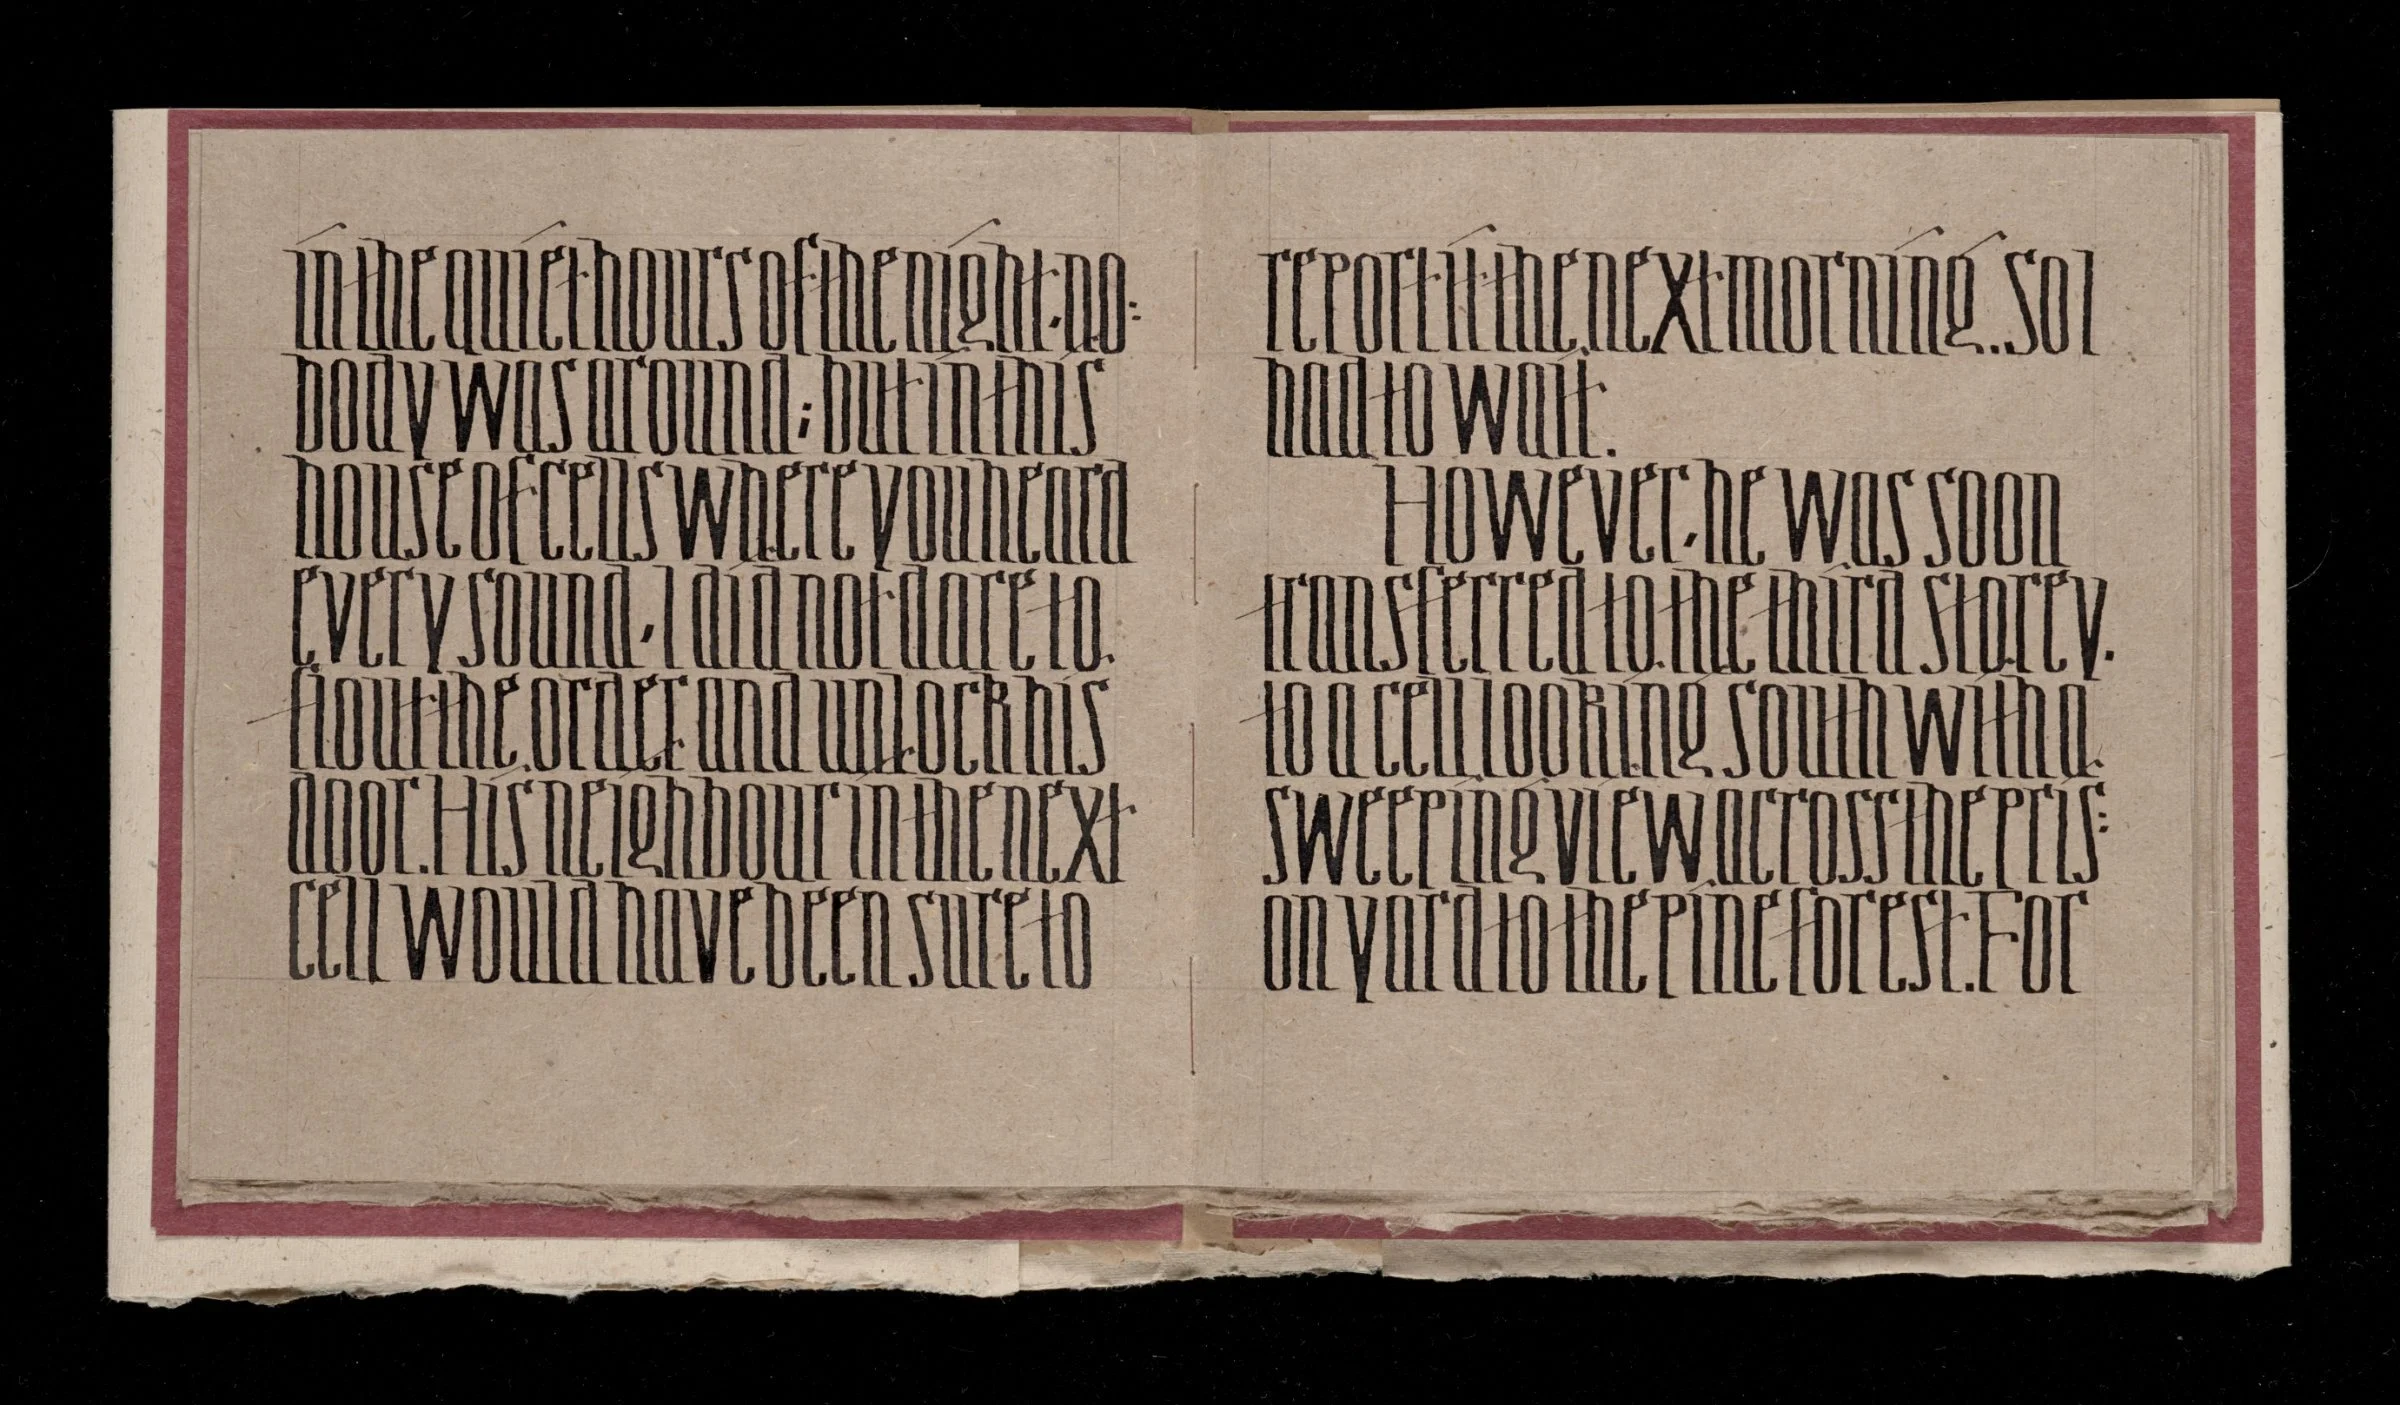 in the quiet hours of the night, no:
body was around; but in this
house of cells where you heard
every sound, I did not dare to
flout the order and unlock his
door. His neighbour in the next
cell would have been sure to
report it the next morning. So I
had to wait.
However, he was soon
transferred to the third storey,
to a cell looking south with a
sweeping view across the pris:
on yard to the pine forest. For